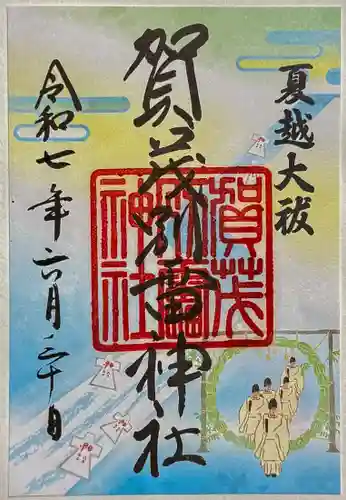 夏越大祓
賀茂別雷神社
令和七年六月三十日
賀茂
別雷
神社